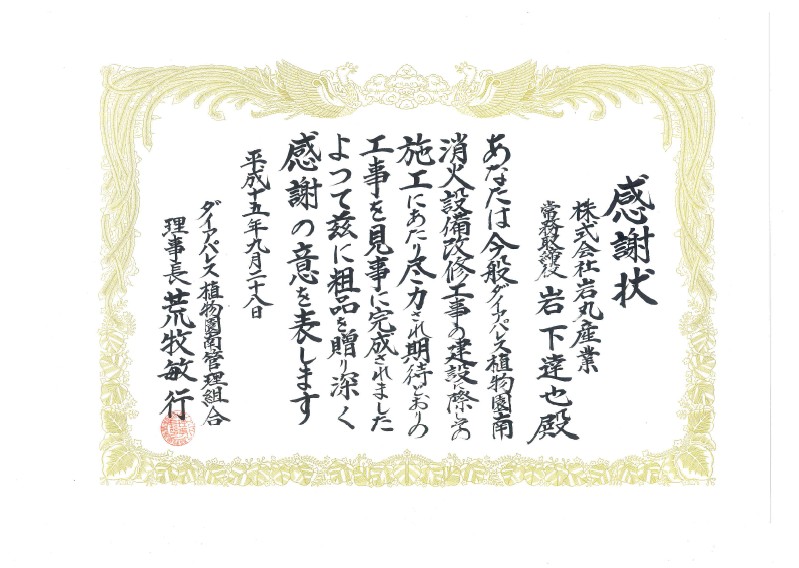 感謝状
株式会社岩丸産業
常務取締役 岩下達也殿
あなたは今般ダイアパレス植物園南
消火設備改修工事の建設に際しその
施工にあたり尽力され期待どおりの
工事を見事に完成されました
よって茲に粗品を贈り深く
感謝の意を表します
平成十五年九月二十八日
ダイアパレス植物園南管理組合
理事長 荒牧敏行